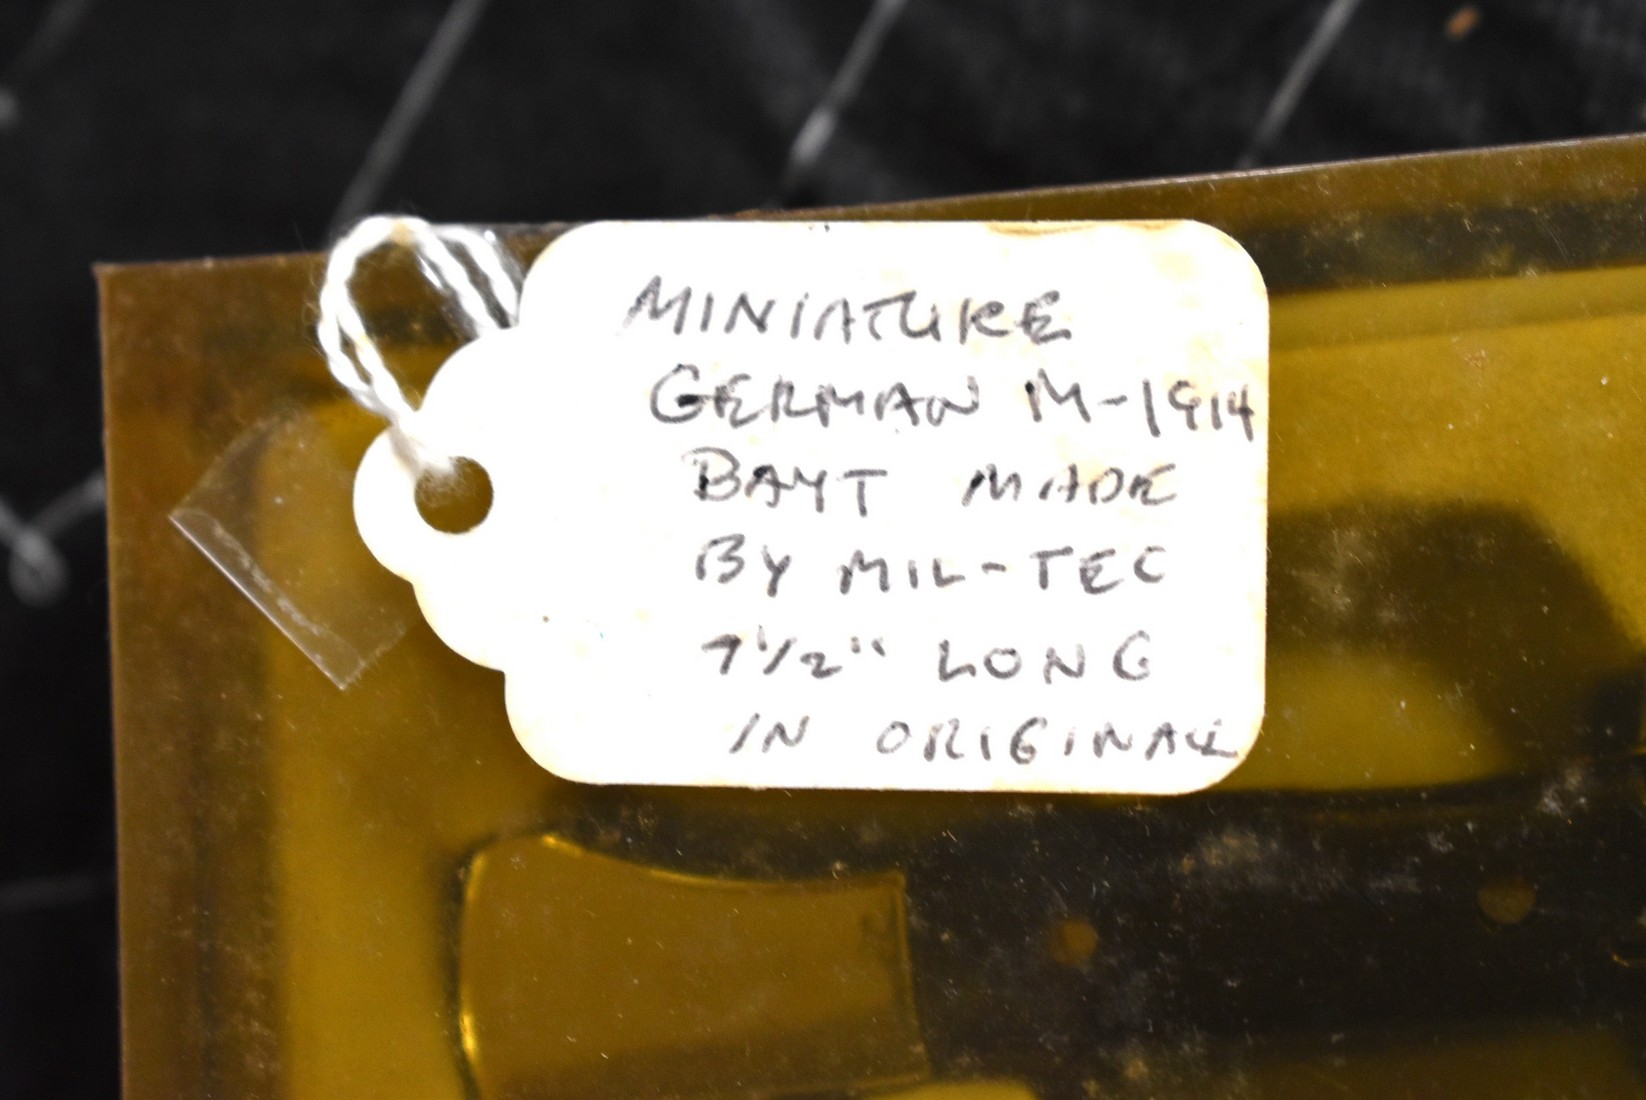 MINIATURE
GERMAN M-1914
BAYT MADE
BY MIL-TEC
7 1/2" LONG
IN ORIGINAL